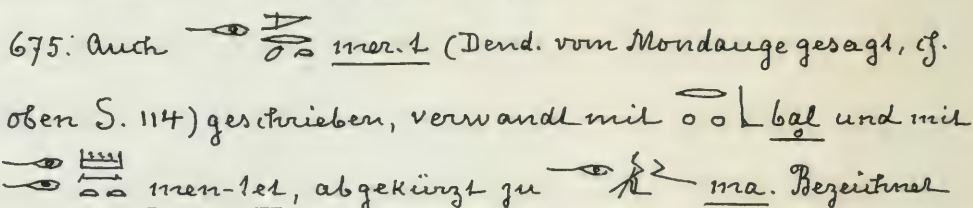 675: Auch mer.t (Dend. vom Mondauge gesagt, cf.
oben S. 114) geschrieben, verwandt mit bal und mit
men-tet, abgekürzt zu ma. Bezeichnet